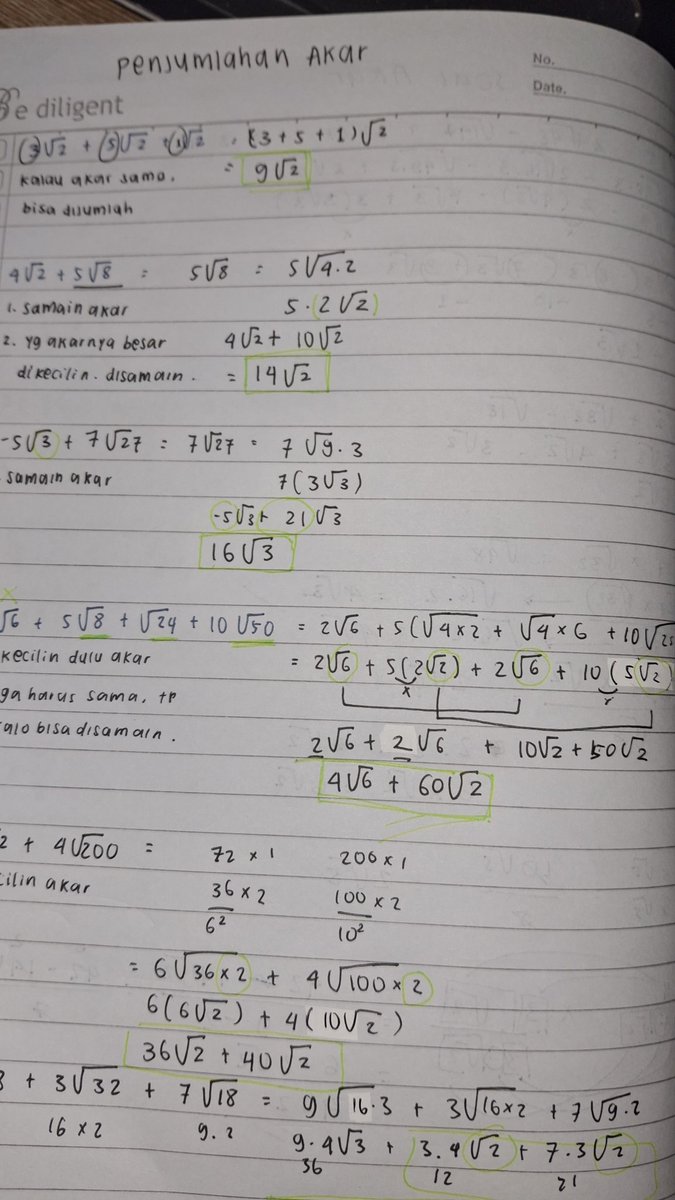 PENJUMLAHAN AKAR
No.
Date.
Be diligent
3√2 + 5√2 + 1√2 = (3+5+1)√2
kalau akar sama. = 9√2
bisa dijumlah
4√2 + 5√8 = 5√8 = 5√4.2
1. samain akar 5.(2√2)
2. yg akarnya besar 4√2 + 10√2
dikecilin. disamain. = 14√2
-5√3 + 7√27 = 7√27 = 7√9.3
samain akar 7(3√3)
-5√3 + 21√3
16√3
√6 + 5√8 + √24 + 10√50 = 2√6 + 5(√4×2 + √4×6 + 10√25
kecilin dulu akar = 2√6 + 5(2√2) + 2√6 + 10(5√2)
ga harus sama, tp
alo bisa disamain. 2√6 + 2√6 + 10√2 + 50√2
4√6 + 60√2
2 + 4√200 = 72 × 1 200 × 1
cilin akar 36 × 2 100 × 2
6² 10²
= 6√36×2 + 4√100×2
6(6√2) + 4(10√2)
36√2 + 40√2
3 + 3√32 + 7√18 = 9√16.3 + 3√16×2 + 7√9.2
16 × 2 9.2 9.4√3 + 3.4√2 + 7.3√2
36 12 21